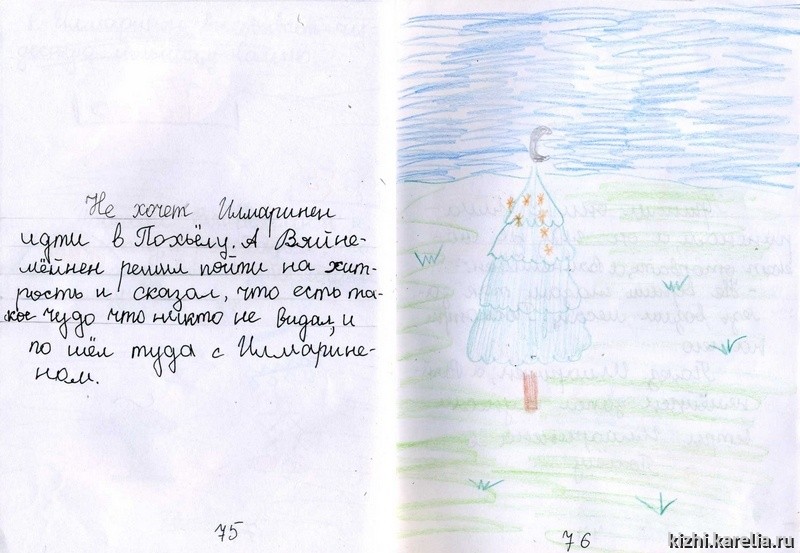 Не хочет Илмаринен
идти в Похъёлу. А Вяйне-
мёйнен решил пойти на хит-
рость и сказал, что есть та-
кое чудо что никто не видал, и
по шёл туда с Илмарине-
ном.
75
76
kizhi.karelia.ru